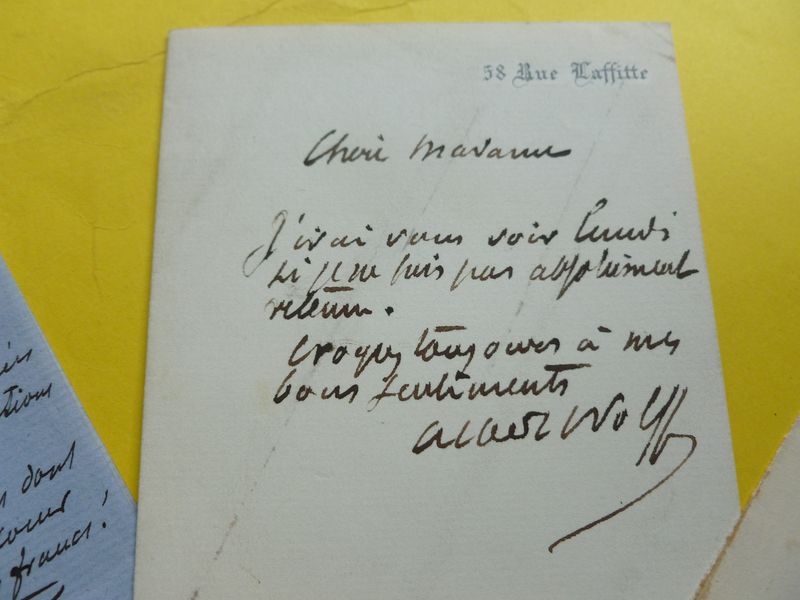 58 Rue Laffitte
Chère Madame
J'irai vous voir lundi
si je ne suis pas absolument
retenu.
Croyez toujours à mes
bons sentiments
Albert Wolff
tions
dont
coeur
francs!